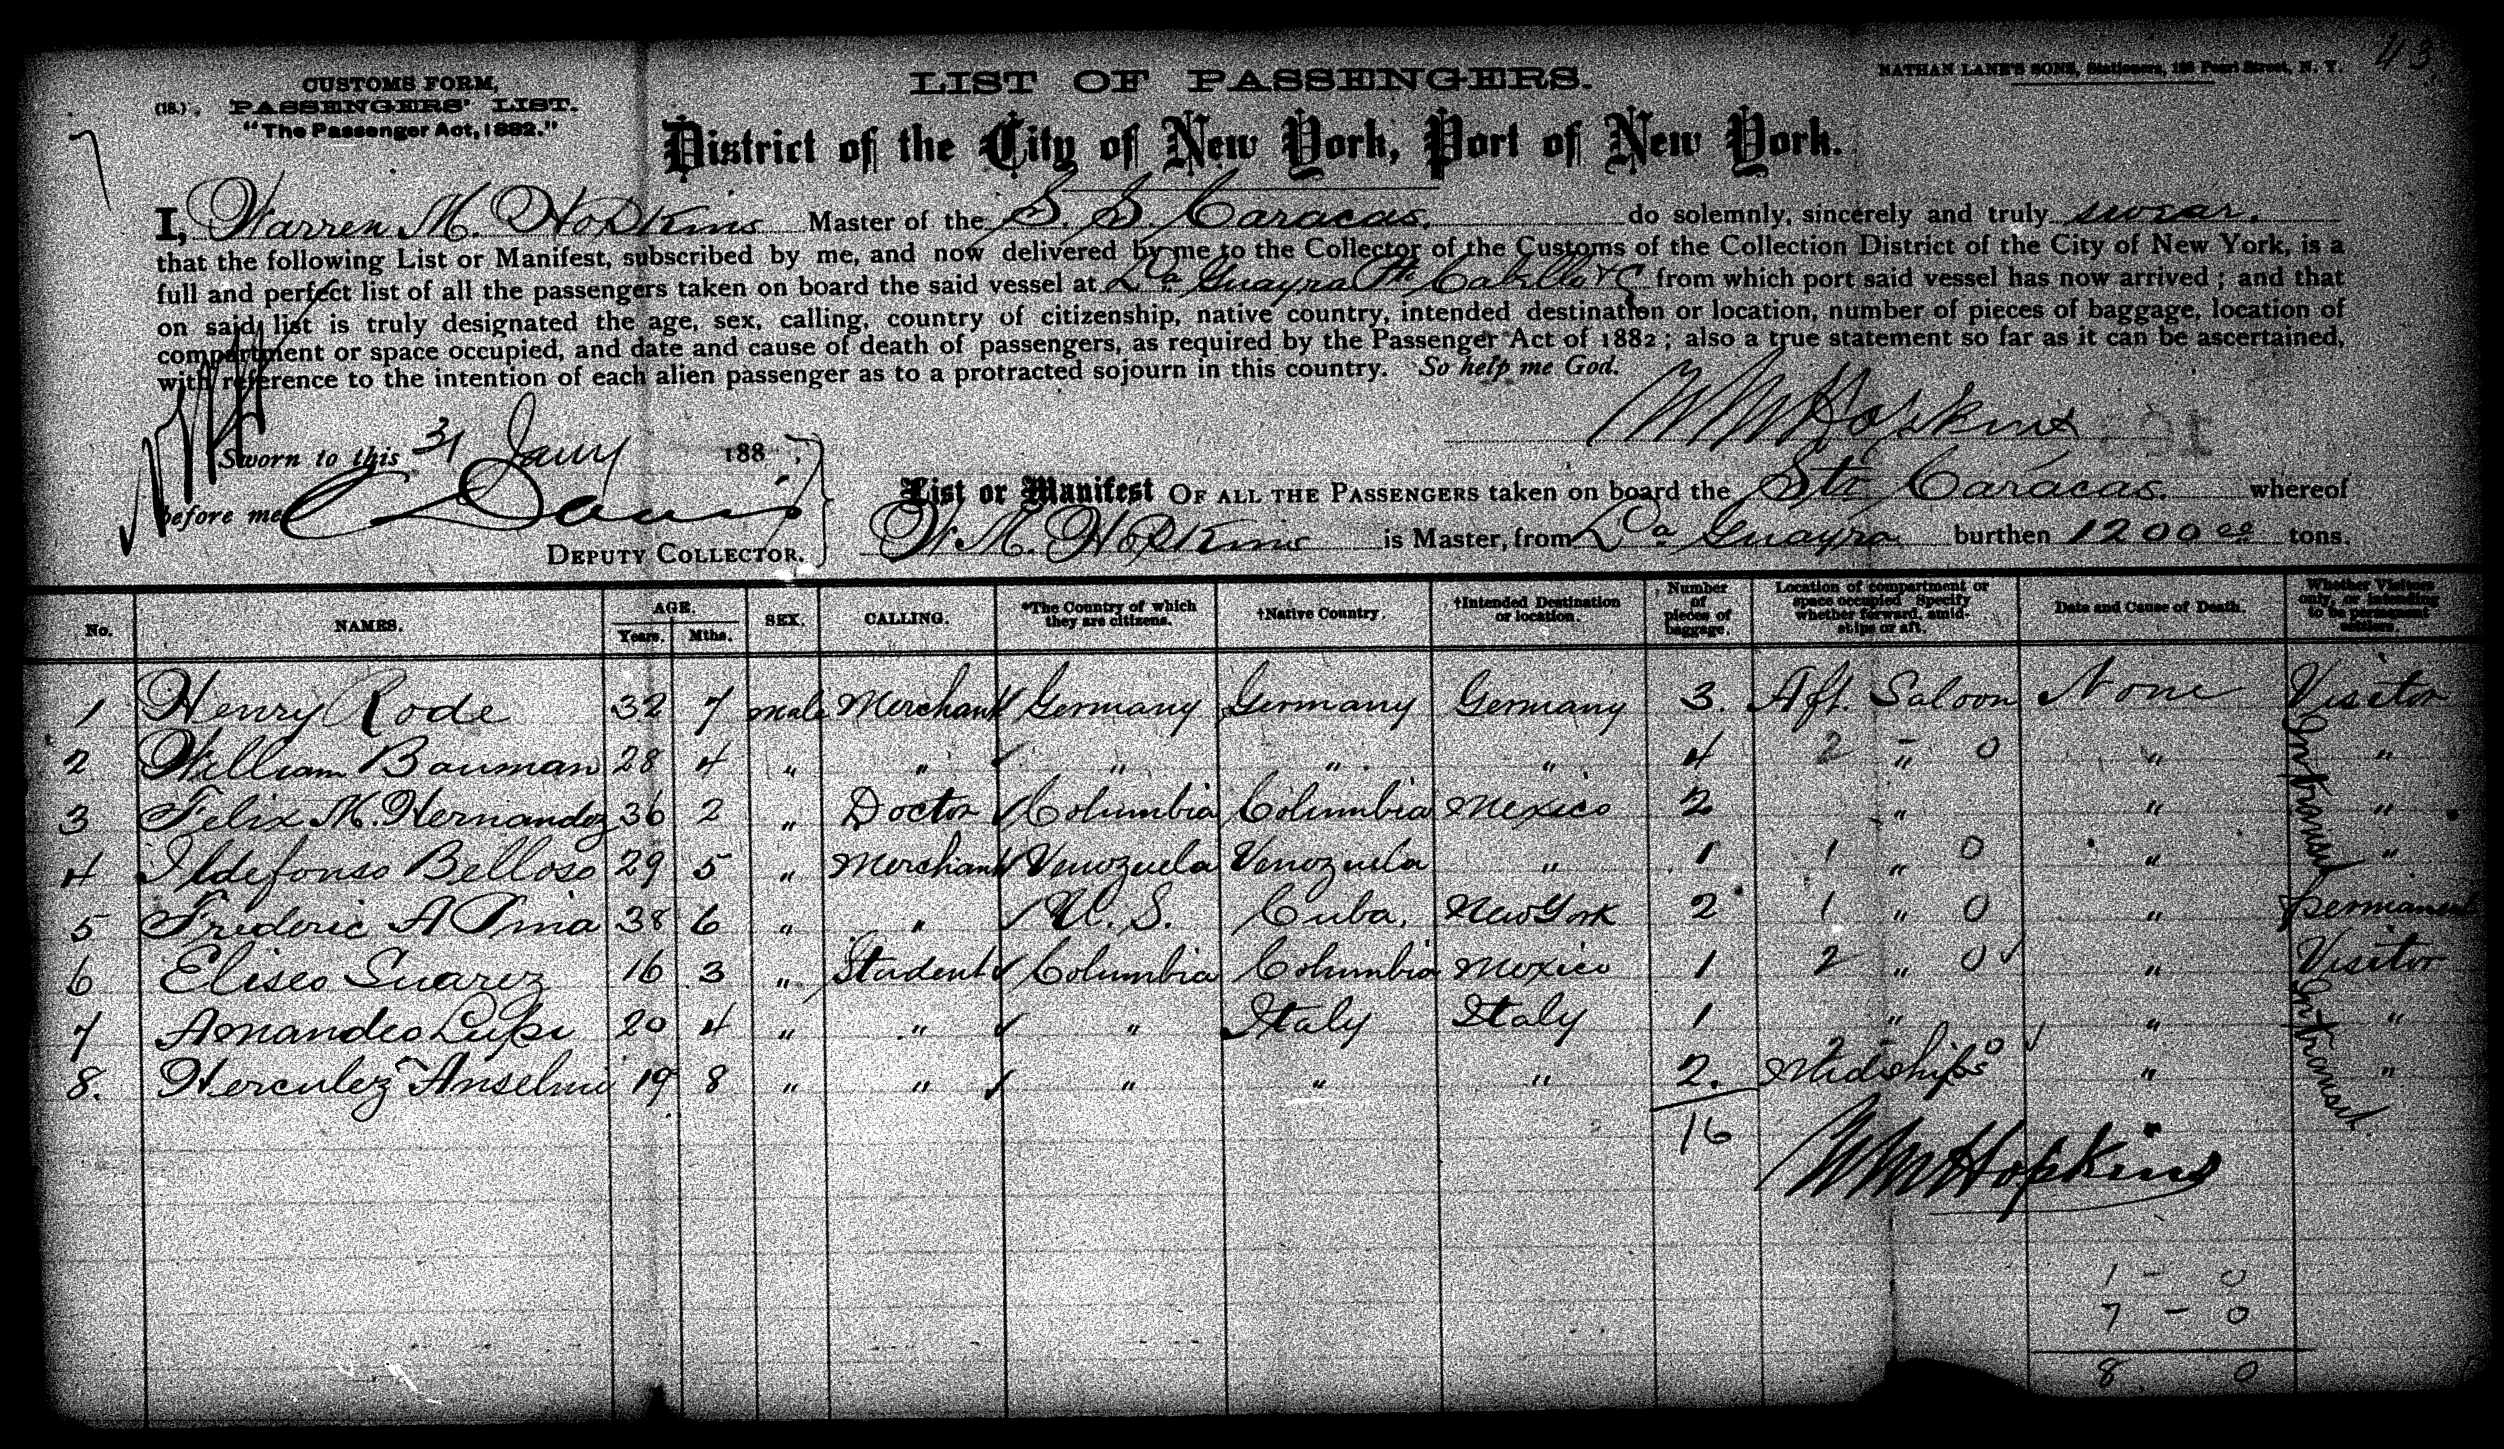 43
CUSTOMS FORM,
(18.) PASSENGERS' LIST.
"The Passenger Act, 1882."
LIST OF PASSENGERS.
NATHAN LANE'S SONS, Stationers, Pearl Street, N. Y.
District of the City of New York, Port of New York.
I, Warren M. Hopkins Master of the S. S. Caracas. do solemnly, sincerely and truly swear.
that the following List or Manifest, subscribed by me, and now delivered by me to the Collector of the Customs of the Collection District of the City of New York, is a
full and perfect list of all the passengers taken on board the said vessel at La Guayra Pto Cabello & C from which port said vessel has now arrived; and that
on said list is truly designated the age, sex, calling, country of citizenship, native country, intended destination or location, number of pieces of baggage, location of
compartment or space occupied, and date and cause of death of passengers, as required by the Passenger Act of 1882; also a true statement so far as it can be ascertained,
with reference to the intention of each alien passenger as to a protracted sojourn in this country. So help me God.
W M Hopkins
Sworn to this 31 Jany 188
before me
DEPUTY COLLECTOR.
List or Manifest OF ALL THE PASSENGERS taken on board the Str Caracas. whereof
W. M. Hopkins is Master, from La Guayra burthen 1200 00 tons.
No. NAMES. AGE. Years. Mths. SEX. CALLING. *The Country of which they are citizens. †Native Country. †Intended Destination or location. Number of pieces of baggage. Location of compartment or space occupied. Specify whether forward, amidships or aft. Date and Cause of Death. Whether Visitors only, or intending to be permanent settlers.
1 Henry Rode 32 7 male Merchant Germany Germany Germany 3. Aft. Saloon None Visitor
2 William Bauman 28 4 " " " " " 4 2 - " 0 " " In transit
3 Felix M. Hernandez 36 2 " Doctor Columbia Columbia Mexico 2 " " "
4 Ildefonso Belloso 29 5 " Merchant Venezuela Venezuela " 1 1 " 0 " "
5 Frederic A Pina 38 6 " " U. S. Cuba. New York 2 1 " 0 " permanent
6 Eliseo Suarez 16 3 " Student Columbia Columbia Mexico 1 2 " 0 " Visitor
7 Amandeo Lupi 20 4 " " " Italy Italy 1 " " " In transit
8. Herculez Anselmi 19 8 " " " " " 2. 2 - 0 Midships " "
16
W M Hopkins
1 - 0
7 - 0
8 0